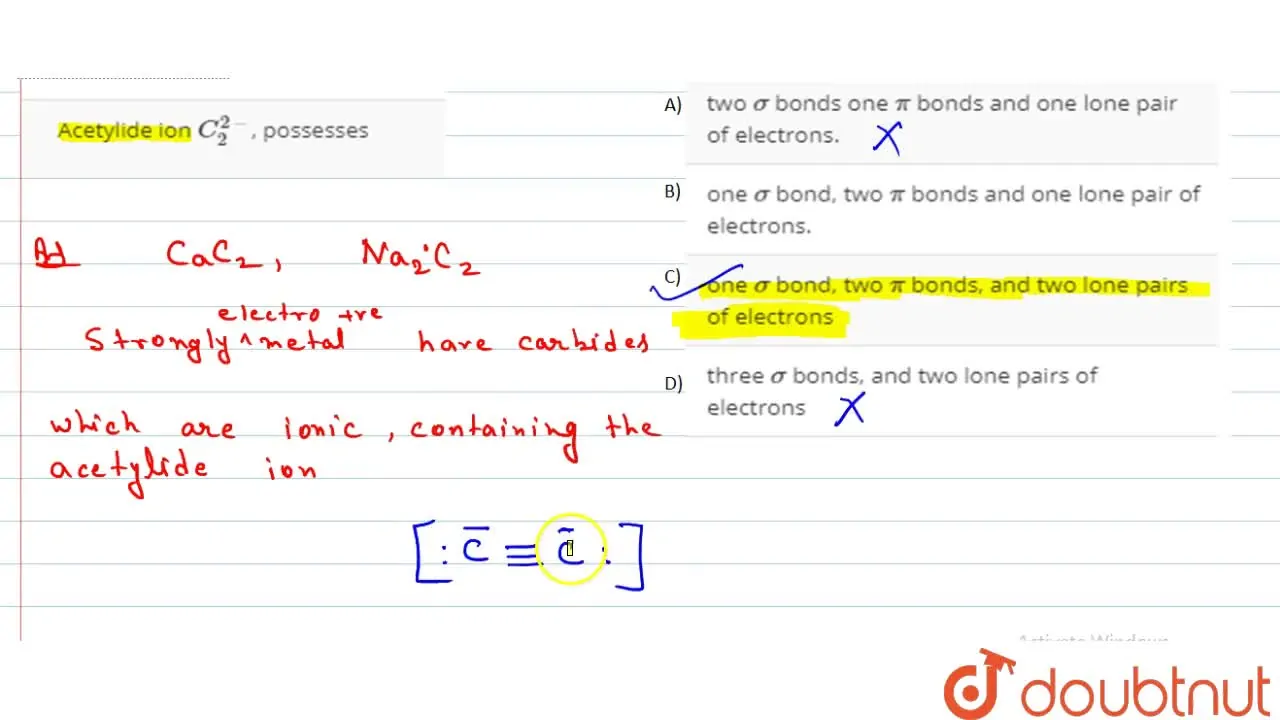 Acetylide ion C₂²⁻, possesses
A) two σ bonds one π bonds and one lone pair
of electrons. X
B) one σ bond, two π bonds and one lone pair of
electrons.
C) one σ bond, two π bonds, and two lone pairs
of electrons
D) three σ bonds, and two lone pairs of
electrons X
CaC₂, Na₂C₂
electro +ve
Strongly ^ metal have carbides
which are ionic, containing the
acetylide ion
[: C̄ ≡ C̄ :]
doubtnut